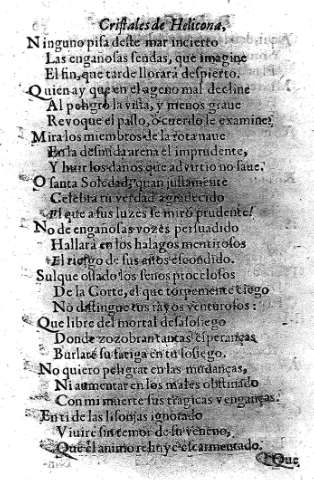 Cristales de Helicona.
Ninguno pisa deste mar incierto
Las engañosas sendas, que imagine
El fin, que tarde llorarà despierto.
Quien ay que en el ageno mal decline
Al peligro la vista, y menos graue
Reuoque el passo, o cuerdo le examine?
Mira los miembros de la rota naue
En la desnuda arena el imprudente,
Y huir los daños que aduirtio no saue.
O santa Soledad, quan justamente
Celebra tu verdad agradecido
El que a sus luzes se mirò prudente!
No de engañosas vozes persuadido
Hallara en los halagos mentirosos
El riesgo de sus años escondido.
Sulque ossado los senos procelosos
De la Corte, el que torpemente ciego
No distingue tus rayos venturosos:
Que libre del mortal desasosiego
Donde zozobran tantas esperanças
Burlarè su fatiga en tu sosiego.
No quiero peligrar en las mudanças,
Ni aumentar en los males obstinado
Con mi muerte sus tragicas venganças.
En ti de las lisonjas ignorado
Viuirè sin temor de su veneno,
Que el animo rehuye escarmentado.
Que